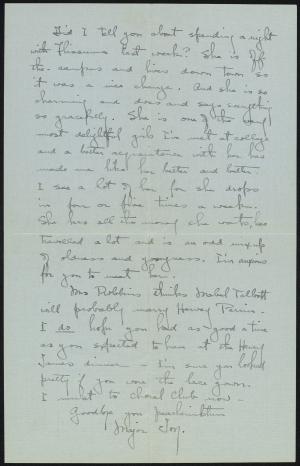 Did I tell you about spending a night
with Florence last week? She is off
the campus and lives down town so
it was a nice change. And she is so
charming and does and says everything
so gracefully. She is one of the very
most delightful girls I've met at college
and a better acquaintance with her has
made me like her better and better.
I see a lot of her for she drops
in four or five times a week.
She has all the money she wants, has
travelled a lot and is an odd mixup
of oldness and youngness. I'm anxious
for you to meet her.
Mrs Robbins thinks Mabel Talbott
will probably marry Harvey
I do hope you had as good a time
as you expected to have at the Henry
James dinner - I'm sure you looked
pretty if you wore the lace gown.
I must to Choral Club now -
Goodbye you
Major Joy.